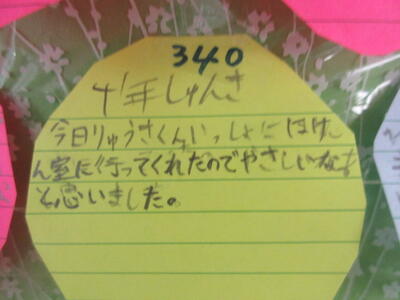 340
1年しゅんき
今日りゅうさくんいっしょにほけ
ん室に行ってくれたのでやさしいなあ
と思いました。